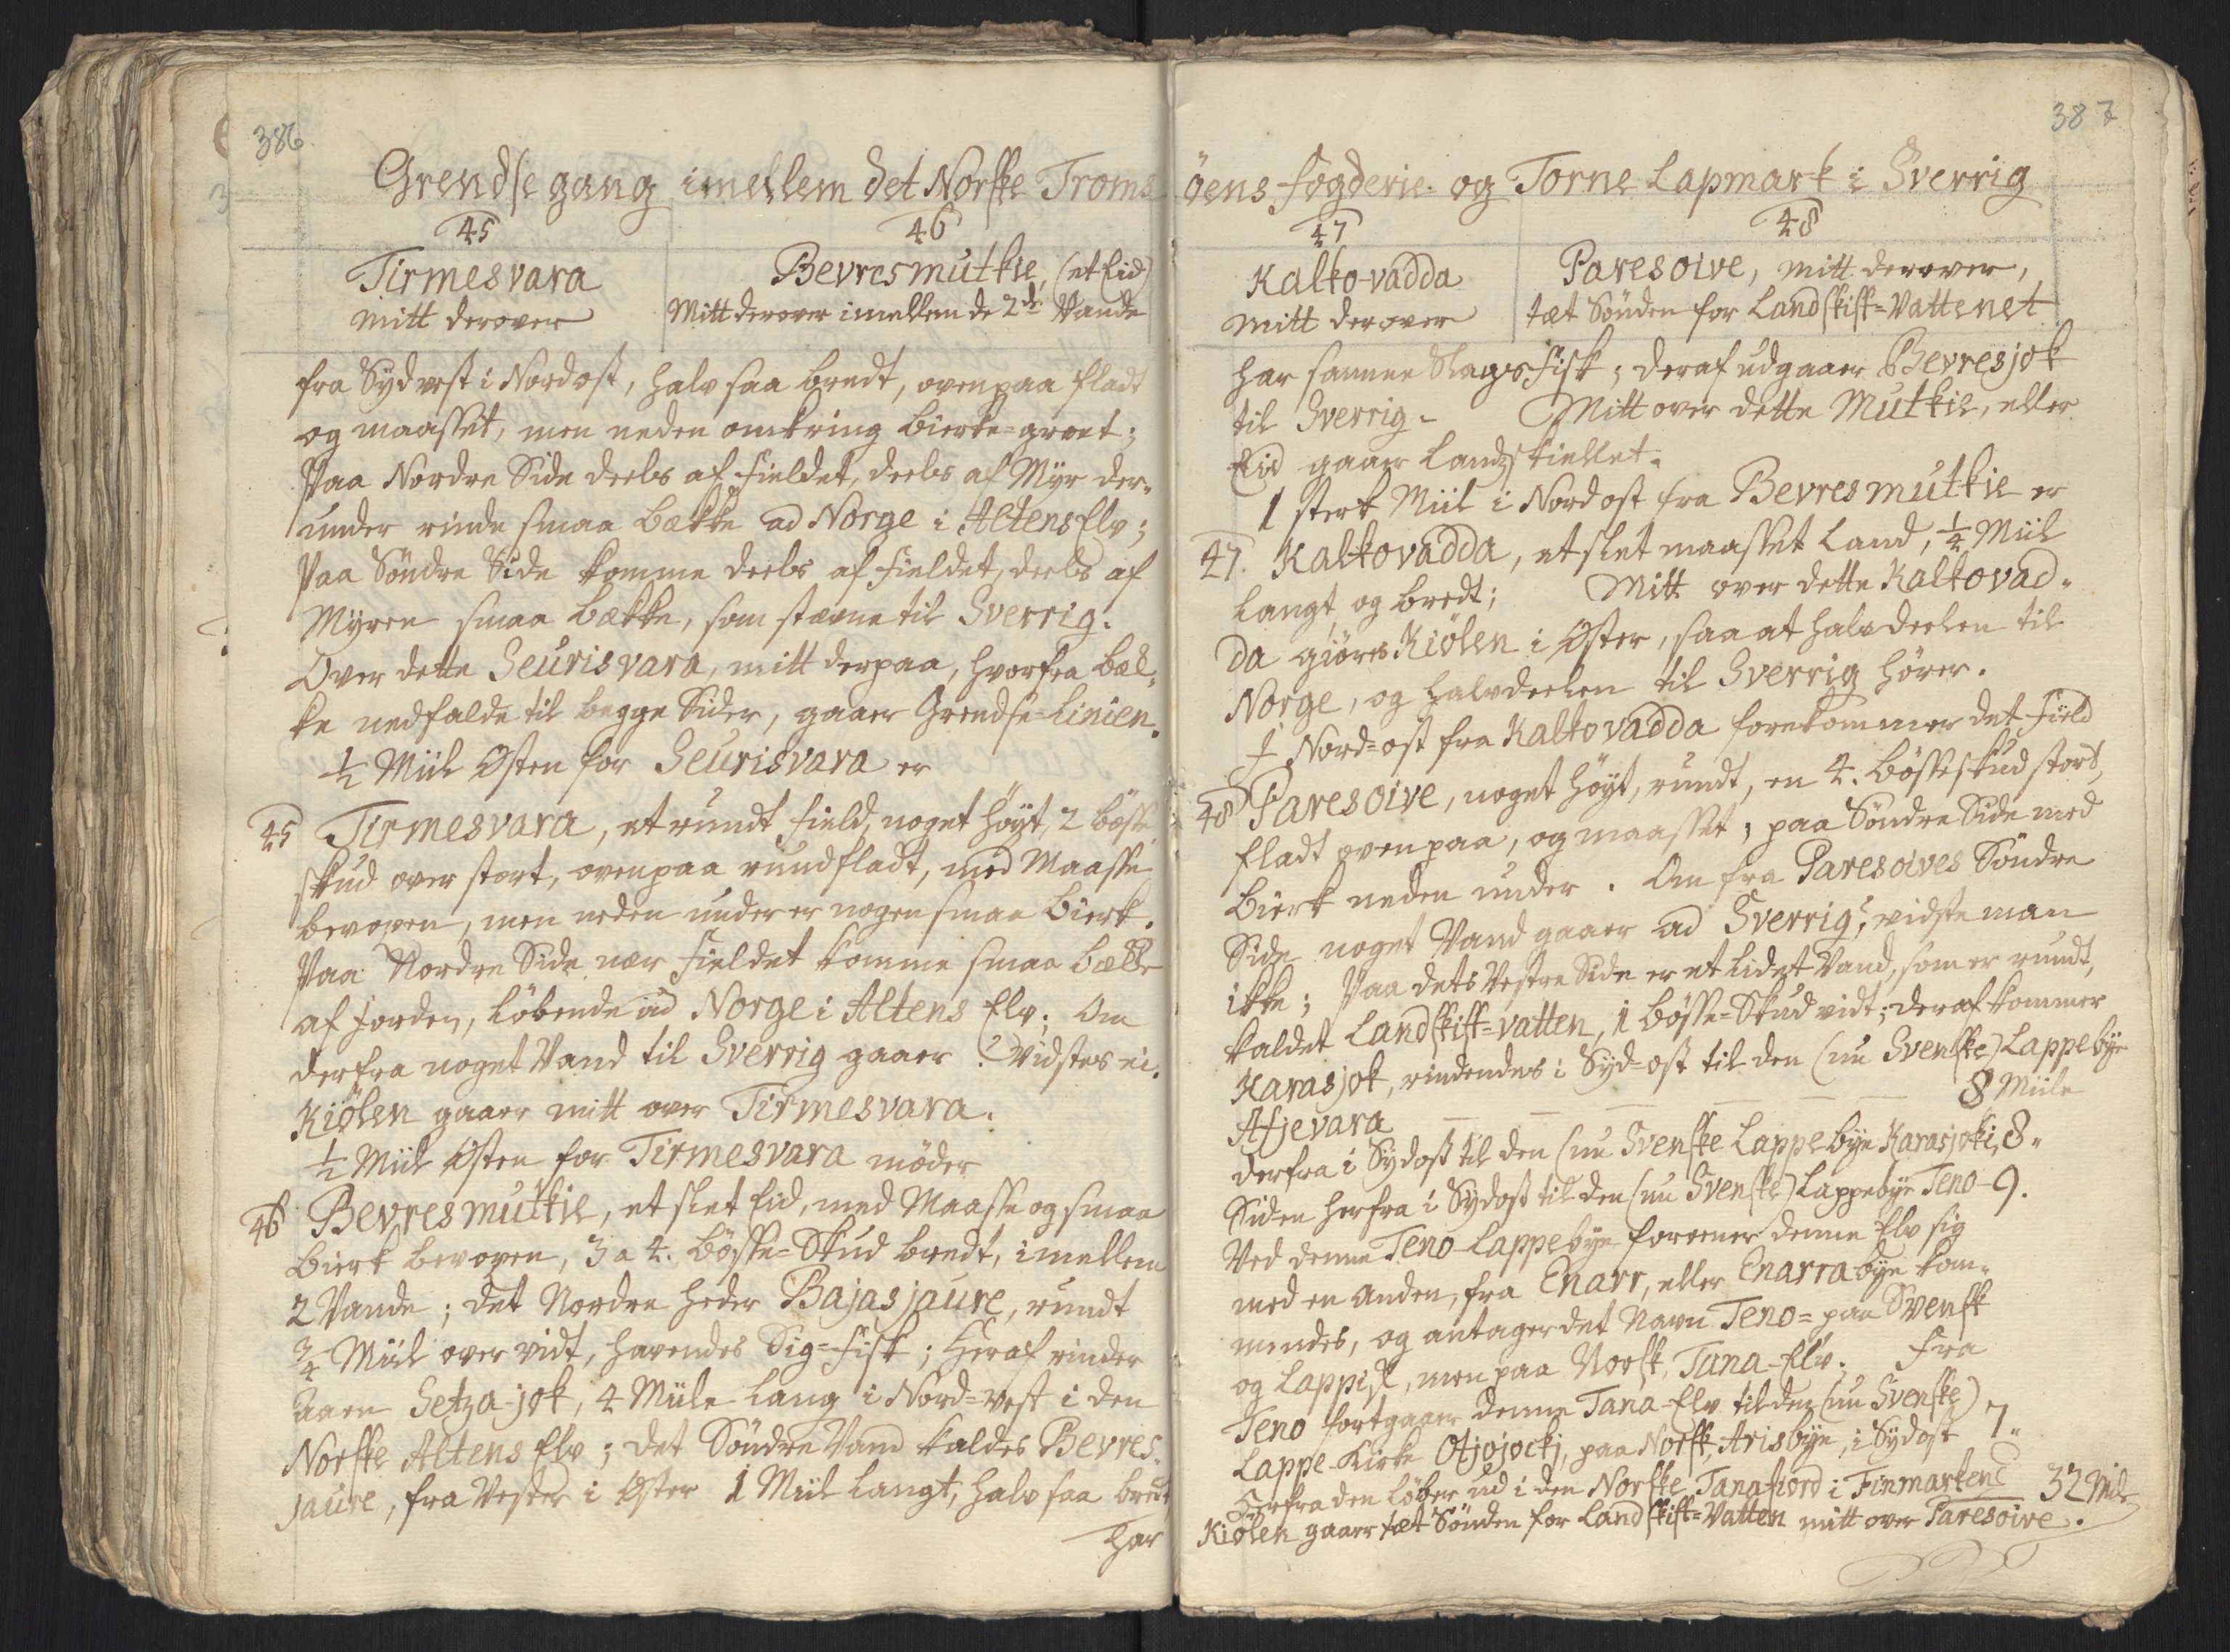 386
Grendse gang imellem det Norske Troms
45
46
Tirmesvara
mitt derover
Bevresmutkie, (et Eid)
Mitt derover imellem de 2de Vande
fra Sydvest i Nordost, halv saa bredt, ovenpaa fladt
og maasset, men neden omkring birke-groet;
Paa Nordre Side deels af fieldet, deels af Myr der-
under rinde smaa bække ad Norge i Altens Elv;
Paa Søndre Side komme deels af fieldet, deels af
Myren smaa bække, som stævne til Sverrig.
Over dette Seurisvara, mitt derpaa, hvorfra bæk-
ke nedfalde til begge Sider, gaaer Grendse-Linien.
1/2 Miil Østen for Seurisvara er
45 Tirmesvara, et rundt field, noget høyt, 2 bøsse
skud over stort, ovenpaa rundfladt, med Maasse
bevoxen, men neden under er nogen smaa birk.
Paa Nordre Side nær fieldet komme smaa bække
af jorden, løbende ad Norge i Altens Elv; Om
derfra noget Vand til Sverrig gaaer? vidstes ei.
Kiølen gaaer mitt over Tirmesvara.
1/2 Miil Østen for Tirmesvara møder
46 Bevresmutkie, et slet Eid, med Maasse og smaa
birk bevoxen, 3 a 4. bøsse-Skud bredt, imellem
2 Vande; det Nordre heder Bajasjaure, rundt
3/4 Miil over vidt, havendes Sig-fisk; Heraf rinder
Aaen Setza-jok, 4 Miile lang i Nord-vest i den
Norske Altens Elv; det Søndre Vand kaldes Bevres-
jaure, fra Vester i Øster 1 Miil langt, halv saa bredt,
har
387
øens fogderie og Torne Lapmark i Sverrig
47
48
Kalko-vadda
mitt derover
Paresoive, mitt derover,
tæt Sønden for Landskift-Vattenet
har samme Slags fisk; deraf udgaaer Bevresjok
til Sverrig. Mitt over dette Mutkie, eller
Eid gaaer Landskiellet.
1 sterk Miil i Nordost fra Bevresmutkie er
47. Kalkovadda, et slet maasset Land, 1/4 Miil
langt og bredt; Mitt over dette Kalkovad-
da giøres Kiølen i Øster, saa at halvdeelen til
Norge, og halvdeelen til Sverrig hører.
I Nord-ost fra Kalkovadda forekommer det field
48 Paresoive, noget høyt, rundt, en 4. bøsseskud stort,
fladt ovenpaa, og maasset; paa Søndre Side med
birk neden under. Om fra Paresoives Søndre
Side noget Vand gaaer ad Sverrig?, vidste man
ikke; Paa dets Vestre Side er et lidet Vand, som er rundt,
kaldet Landskift-vatten, 1 bøsse-Skud vidt; deraf kommer
Karasjok, rindendes i Syd-ost til den (nu Svenske) Lappebye
Afjevara — — — — — 8 Miile
derfra i Sydost til den (nu Svenske Lappe bye Karasjoki, 8"
Siden herfra i Sydost til den (nu Svenske) Lappebye Teno-9.
Ved denne Teno-Lappebye forener denne Elv sig
med en anden, fra Enarr, eller Enarra-bye kom-
mendes, og antager det Navn Teno= paa Svensk
og Lappisk, men paa Norsk, Tana-Elv. Fra
Teno fortgaaer denne Tana-Elv til den (nu Svenske)
Lappe-Kirke Otjojockj, paa Norsk, Arisbye, i Sydost 7"
Herfra den løber ud i den Norske Tanafiord i Finmarken 32 Mile
Kiølen gaaer tæt Sønden for Landskift-Vatten mitt over Paresoive.